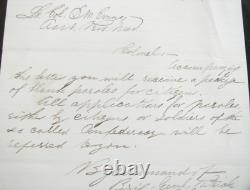 Lt Col E M Conger
Asst. Pro. Mar.
Colonel -
Accompanying
the letter you will receive a package
of blank paroles for citizens.
All applications for paroles
either by citizens or soldiers of the
so called Confederacy will be
referred to you.
By Command of
Brig. Genl